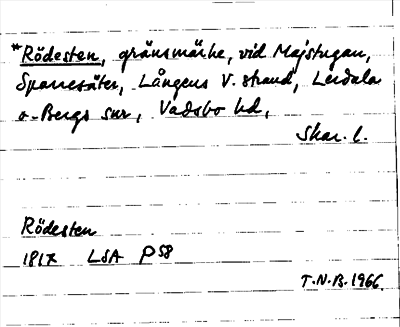 *Rödesten, gränsmärke, vid Majstugan,
Sparresäter, Långens V. strand, Lerdala
o. Bergs snr, Vadsbo hd,
Skar. l.
Rödesten
1817 LSA P58
T.N.B. 1966.